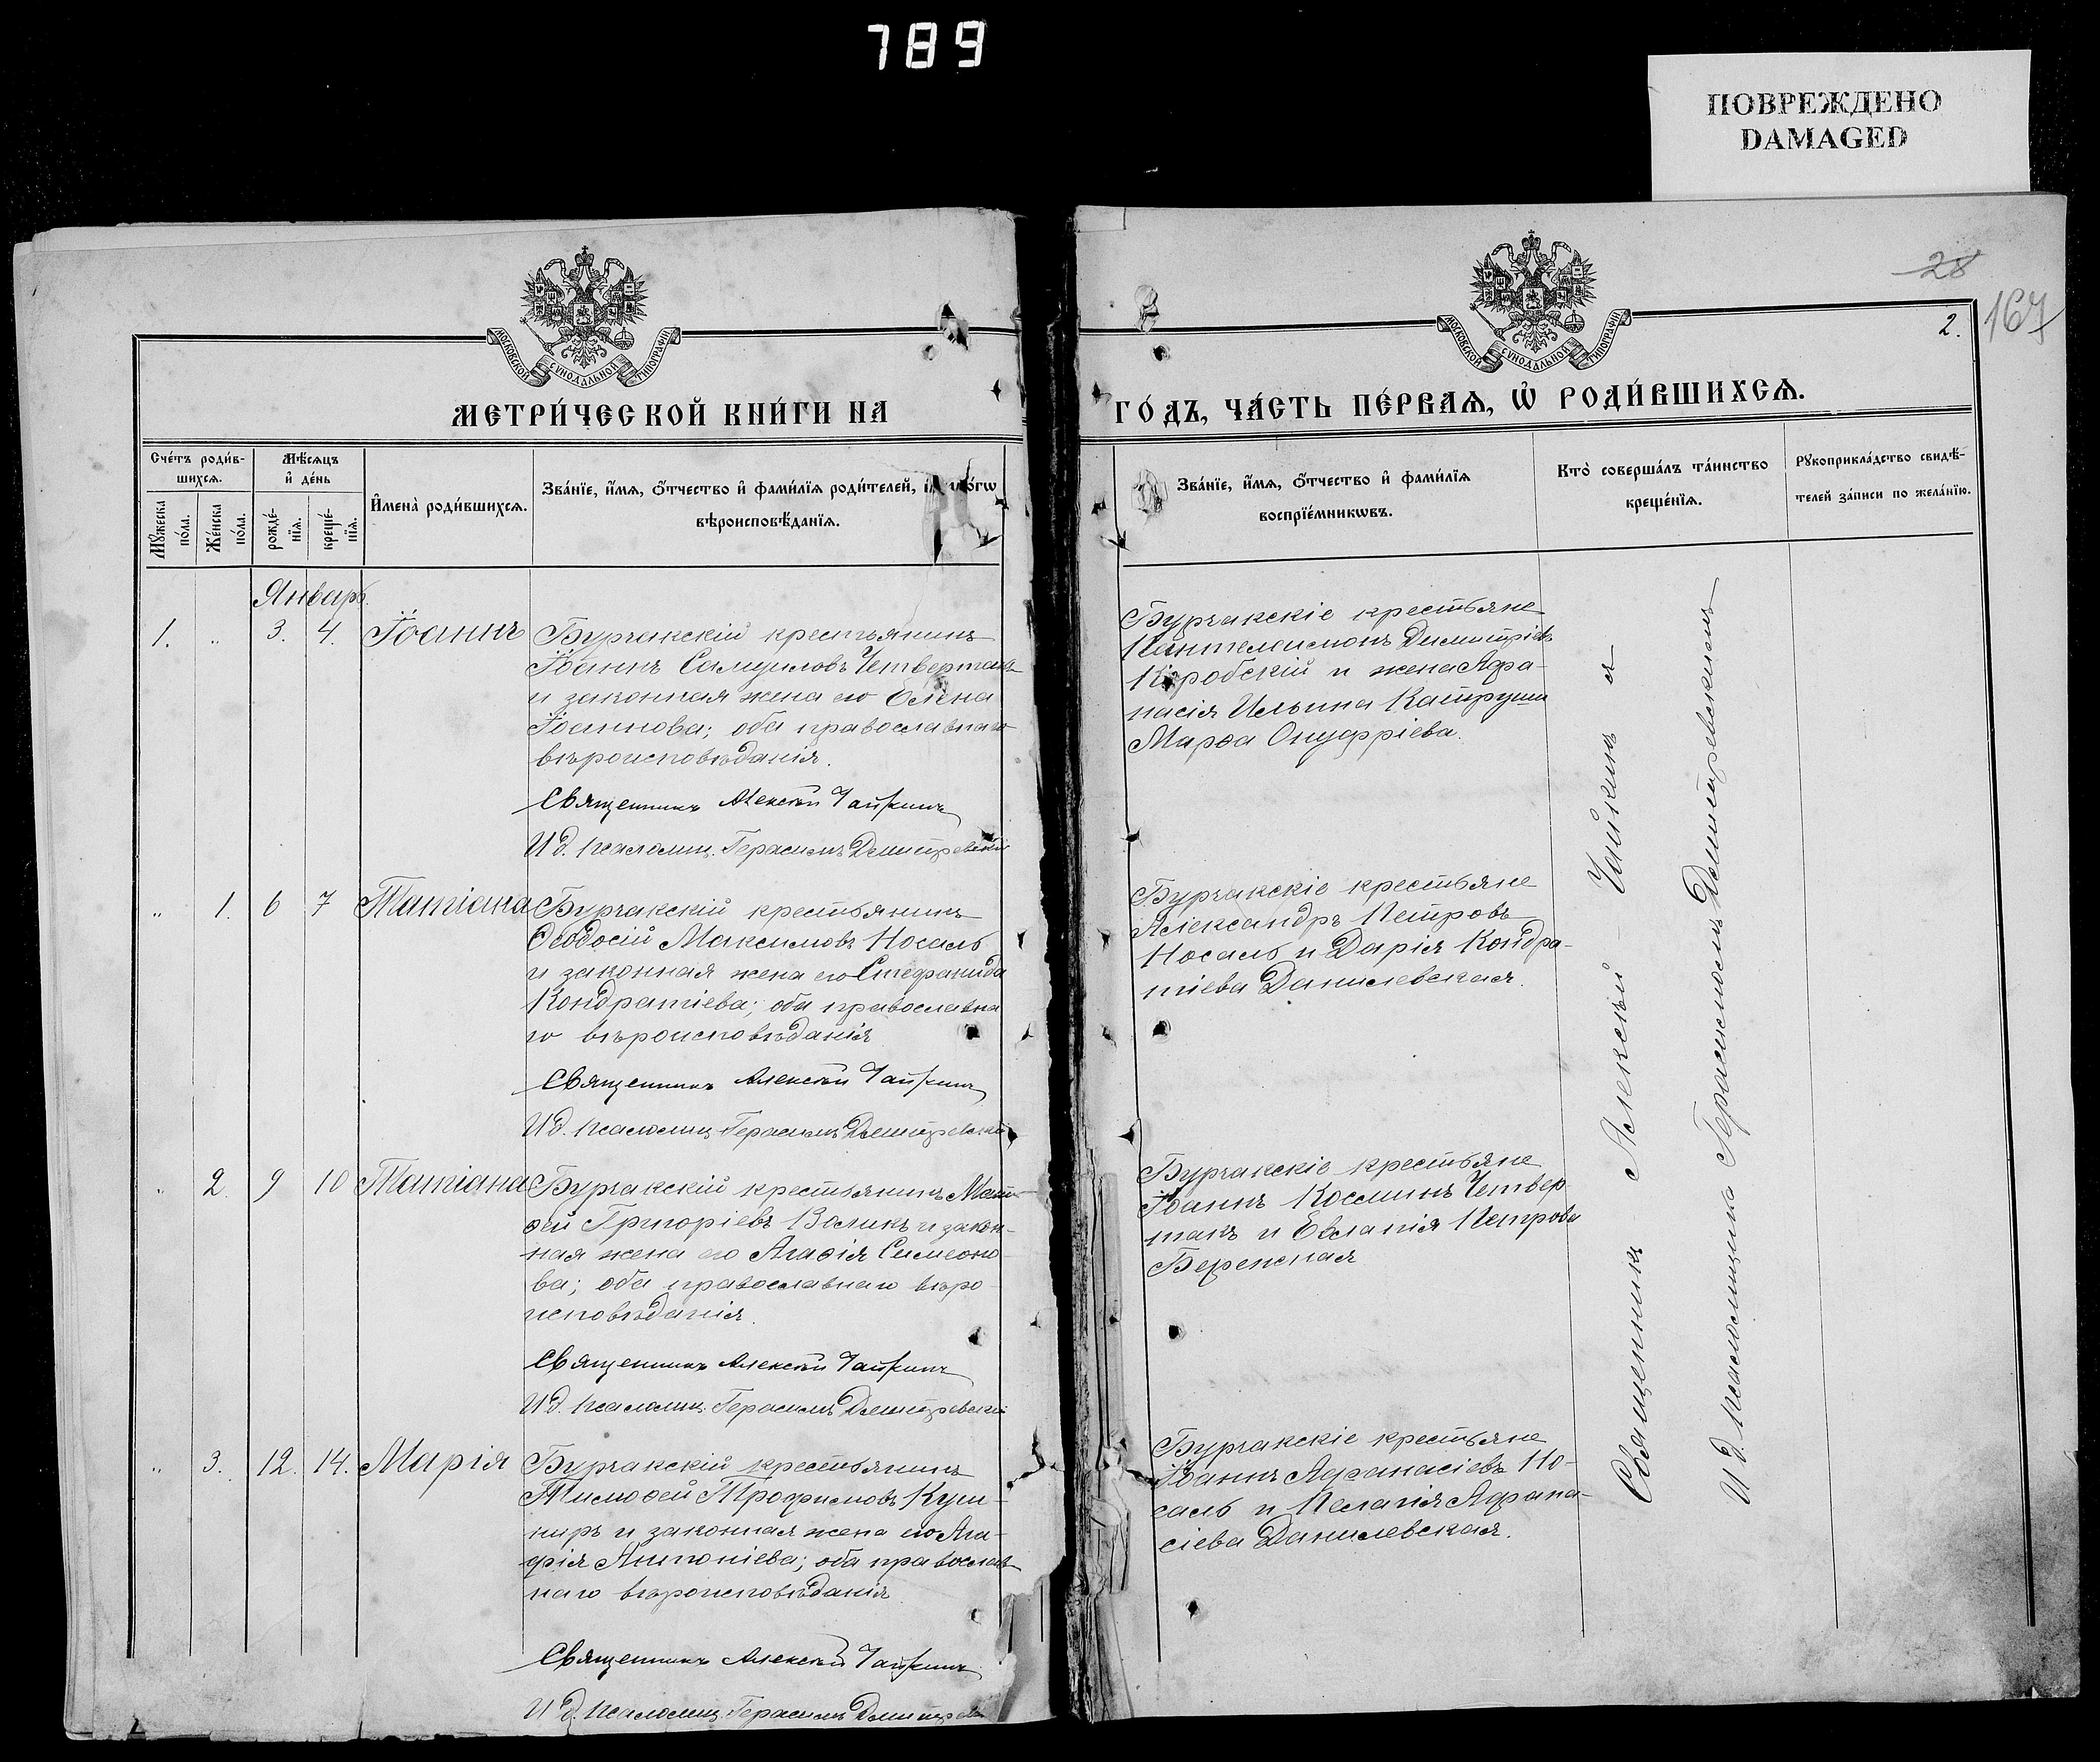 789
ПОВРЕЖДЕНО
DAMAGED
28
167
2.
МОСКОВСКОЙ СѴНОДАЛЬНОЙ ТИПОГРАФІИ
МОСКОВСКОЙ СѴНОДАЛЬНОЙ ТИПОГРАФІИ
МЕТРИ́ЧЕСКОЙ КНИ́ГИ НА
ГО́ДЪ, ЧА́СТЬ ПЕ́РВАѦ, Ѡ҆ РОДИ́ВШИХСѦ.
Сче́тъ роди́в-
шихсѧ.
Мꙋ́жеска
по́ла.
Же́нска
по́ла.
Мѣ́сѧцъ
и҆ де́нь
рожде́-
нїѧ.
креще́-
нїѧ.
И҆мена̀ роди́вшихсѧ.
Зва́нїе, и҆́мѧ, ѻ҆́тчество и҆ фами́лїѧ роди́телей, и҆
вѣроисповѣ́данїѧ.
Зва́нїе, и҆́мѧ, ѻ҆́тчество и҆ фами́лїѧ
воспрїе́мникѡвъ.
Кто̀ соверша́лъ та́инство
креще́нїѧ.
Рꙋкоприкла́дство свидѣ́-
телей за́писи по жела́нїю.
Январь.
1. „ 3. 4. Іоаннъ
Бурчакскій крестьянинъ
Іоаннъ Самуиловъ Четвертакъ
и законная жена его Елена
Іоаннова; оба православнаго
вѣроисповѣданія.
Священникъ Алексѣй Чайкинъ
И д. псаломщ. Герасимъ Демитревскій
Бурчакскіе крестьяне
Пантелеимонъ Димитріевъ
Коробскій и жена Афа-
насія Ильина Катруши
Марѳа Онуфріева.
„ 1. 6 7 Татіана
Бурчакскій крестьянинъ
Ѳеодосій Максимовъ Носаль
и законная жена его Стефанида
Кондратіева; оба православна
го вѣроисповѣданія
Священникъ Алексѣй Чайкинъ
И д. псаломщ Герасимъ Демитревскій
Бурчакскіе крестьяне
Александръ Петровъ
Носаль и Дарія Кондра-
тіева Данилевская.
„ 2. 9 10 Татіана
Бурчакскій крестьянинъ Мат-
ѳей Григоріевъ Воликъ и закон-
ная жена его Агаѳія Симеоно-
ва; оба православнаго вѣро
исповѣданія.
Священникъ Алексѣй Чайкинъ
И д. псаломщ. Герасимъ Демитревскій
Бурчакскіе крестьяне
Іоаннъ Косминъ Четвер-
такъ и Евлапія Петрова
Бережная
„ 3. 12. 14. Марія
Бурчакскій крестьянинъ
Тимоѳей Трофимовъ Куш-
ниръ и законная жена его Ага-
фія Антоніева; оба православ-
наго вѣроисповѣданія
Священникъ Алексѣй Чайкинъ
И д. псаломщ. Герасимъ Демитрев
Бурчакскіе крестьяне
Іоаннъ Афанасіевъ Но-
саль и Пелагія Афана-
сіева Данилевская.
Священникъ Алексѣй Чайкинъ съ
И д. псаломщика Герасимомъ Демитревскимъ